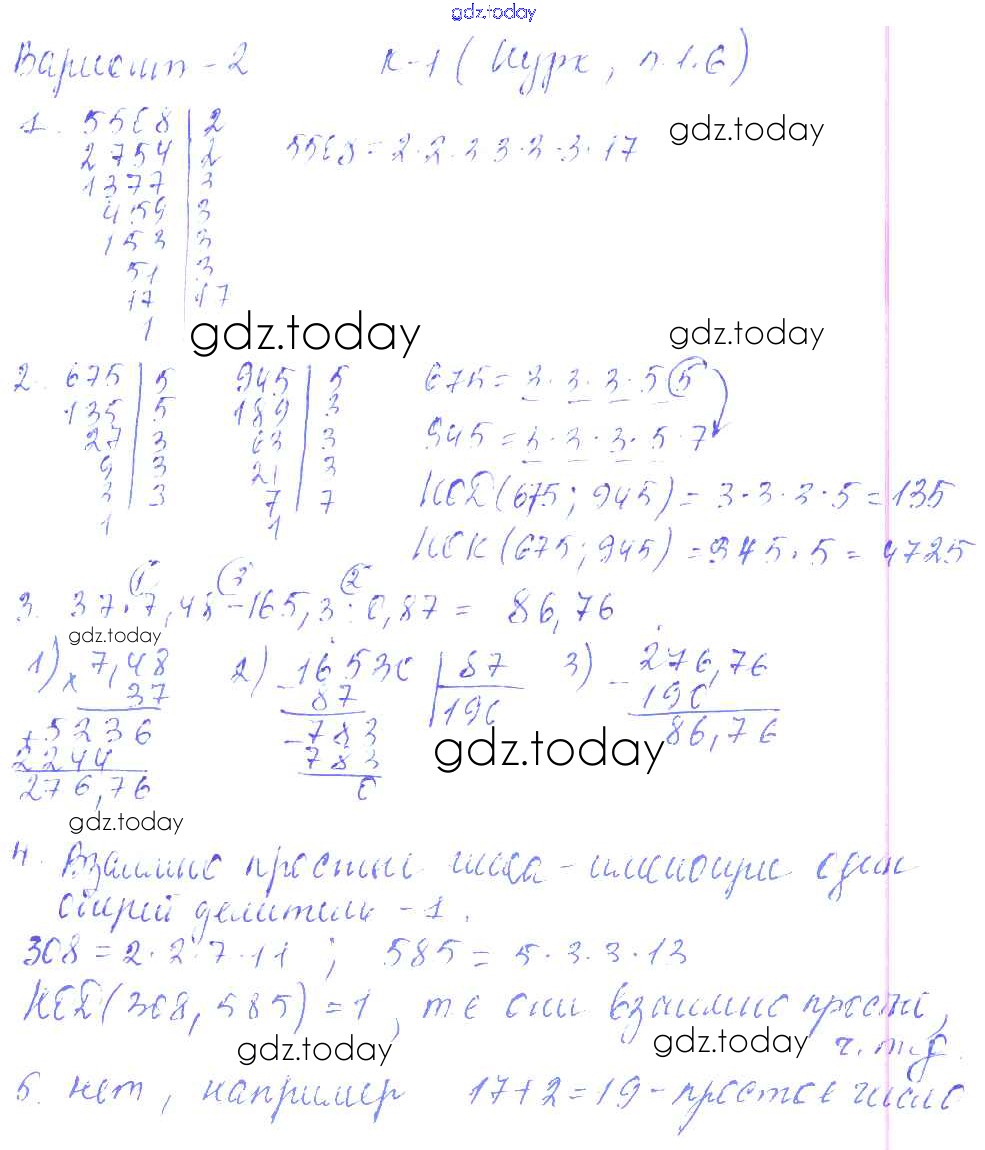 gdz.today
Вариант - 2 К-1 (Нурк, п.1.6)
1. 5508 | 2 gdz.today
2754 | 2 5508 = 2·2·3 3·3·3·17
1377 | 3
459 | 3
153 | 3
51 | 3
17 | 17
1
gdz.today gdz.today
2. 675 | 5 945 | 5 675 = 3·3·3·5 5
135 | 5 189 | 3
27 | 3 63 | 3 945 = 3·3·3·5·7
9 | 3 21 | 3
3 | 3 7 | 7 НОД (675; 945) = 3·3·3·5 = 135
1 1
НОК (675; 945) = 945·5 = 4725
1 3 2
3. 37·7,48 - 165,3 : 0,87 = 86,76
gdz.today
1) × 7,48 2) - 16530 | 87 3) - 276,76
37 87 | 190 190
+ 5236 - 783 86,76
2244 783 gdz.today
276,76 0
gdz.today
4. Взаимно простые числа - имеющие один
общий делитель - 1.
308 = 2·2·7·11 ; 585 = 5·3·3·13
НОД (308, 585) = 1, т е они взаимно просты,
gdz.today gdz.today ч.т.д.
5. нет, например 17+2=19 - простое число